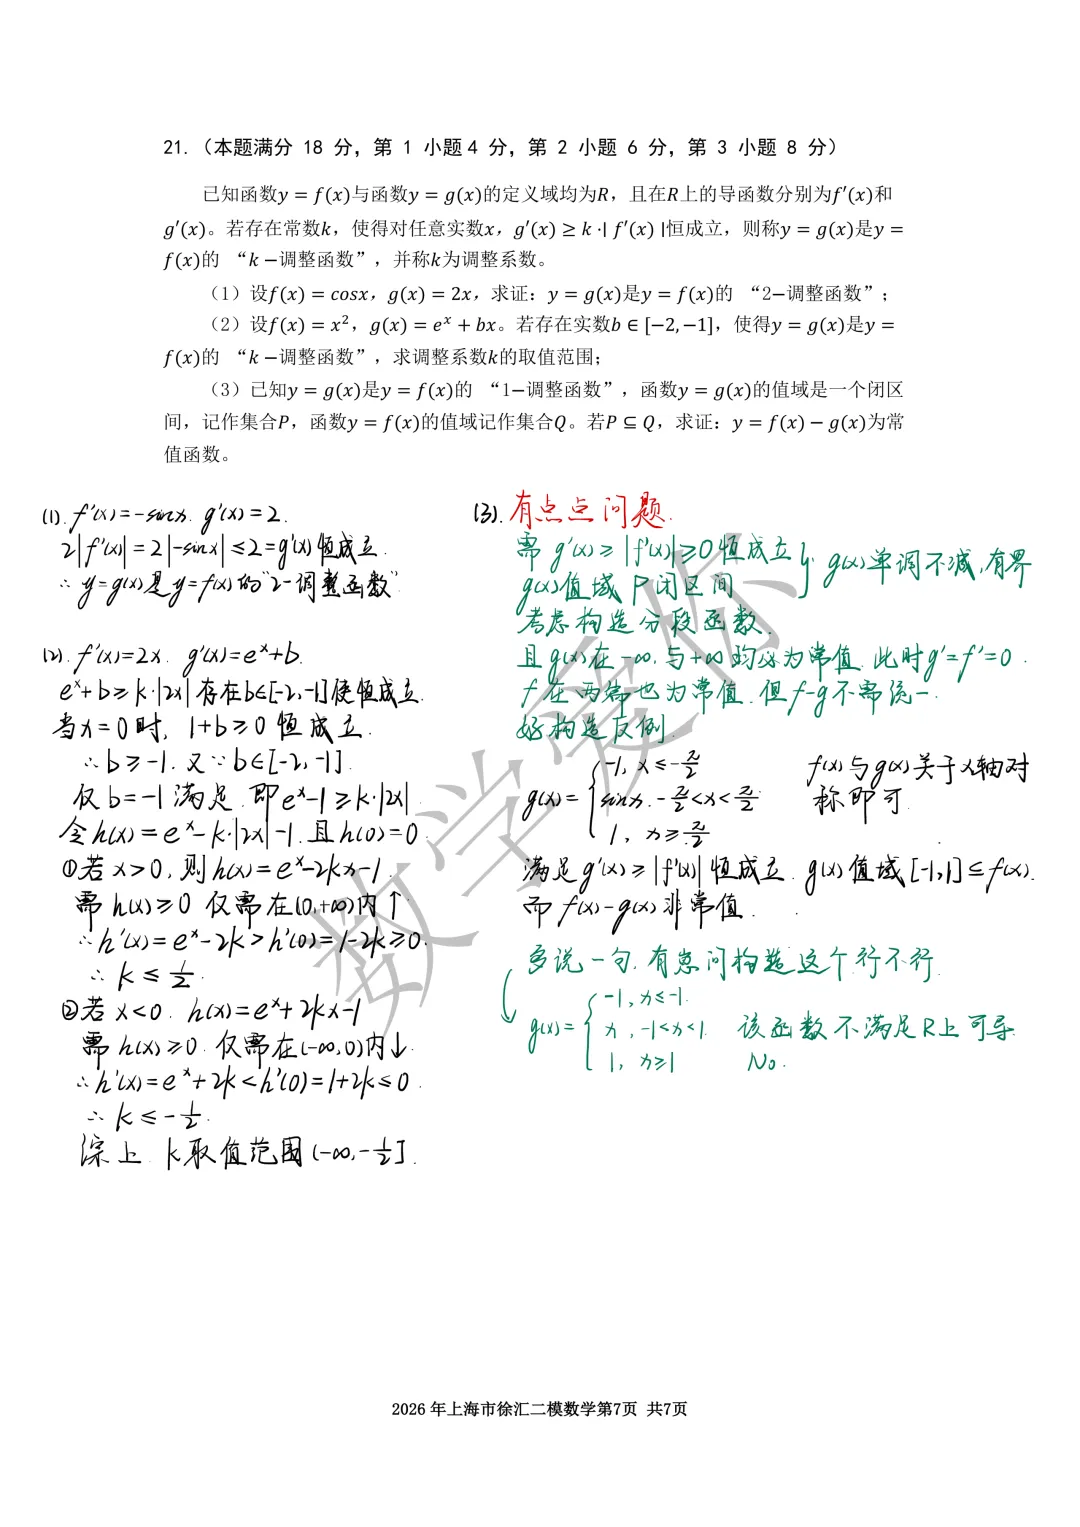 21.（本题满分 18 分，第 1 小题 4 分，第 2 小题 6 分，第 3 小题 8 分）
已知函数y = f(x)与函数y = g(x)的定义域均为R，且在R上的导函数分别为f′(x)和
g′(x)。若存在常数k，使得对任意实数x，g′(x) ≥ k ·| f′(x) |恒成立，则称y = g(x)是y =
f(x)的 “k −调整函数”，并称k为调整系数。
（1）设f(x) = cosx，g(x) = 2x，求证：y = g(x)是y = f(x)的 “2−调整函数”；
（2）设f(x) = x²，g(x) = eˣ + bx。若存在实数b ∈ [−2, −1]，使得y = g(x)是y =
f(x)的 “k −调整函数”，求调整系数k的取值范围；
（3）已知y = g(x)是y = f(x)的 “1−调整函数”，函数y = g(x)的值域是一个闭区
间，记作集合P，函数y = f(x)的值域记作集合Q。若P ⊆ Q，求证：y = f(x) − g(x)为常
值函数。
(1). f′(x)=-sinx. g′(x)=2.
2|f′(x)|=2|-sinx|≤2=g′(x)恒成立.
∴ y=g(x)是y=f(x)的“2-调整函数”
(2). f′(x)=2x. g′(x)=eˣ+b.
eˣ+b≥k·|2x|存在b∈[-2,-1]使恒成立.
当x=0时, 1+b≥0恒成立.
∴b≥-1. 又∵b∈[-2,-1].
仅b=-1满足. 即eˣ-1≥k·|2x|
令h(x)=eˣ-k·|2x|-1. 且h(0)=0
①若x>0, 则h(x)=eˣ-2kx-1.
需h(x)≥0 仅需在(0,+∞)内↑
∴h′(x)=eˣ-2k>h′(0)=1-2k≥0.
∴k≤1/2.
②若x<0. h(x)=eˣ+2kx-1
需h(x)≥0. 仅需在(-∞,0)内↓.
∴h′(x)=eˣ+2k<h′(0)=1+2k≤0.
∴k≤-1/2.
综上. k取值范围(-∞,-1/2].
(3). 有点点问题.
需g′(x)≥|f′(x)|≥0恒成立
g(x)值域P闭区间 } g(x)单调不减,有界
考虑构造分段函数.
且g(x)在-∞与+∞均必为常值. 此时g′=f′=0.
f在两端也为常值. 但f-g不需统一.
好构造反例.
g(x)={ -1, x≤-π/2
sinx. -π/2<x<π/2
1, x≥π/2
f(x)与g(x)关于x轴对
称即可.
满足g′(x)≥|f′(x)|恒成立. g(x)值域[-1,1]⊆f(x).
而f(x)-g(x)非常值.
多说一句, 有总问构造这个行不行.
g(x)={ -1, x≤-1.
x, -1<x<1.
1, x≥1
该函数不满足R上可导.
No.
数学爱你
2026年上海市徐汇二模数学第7页 共7页